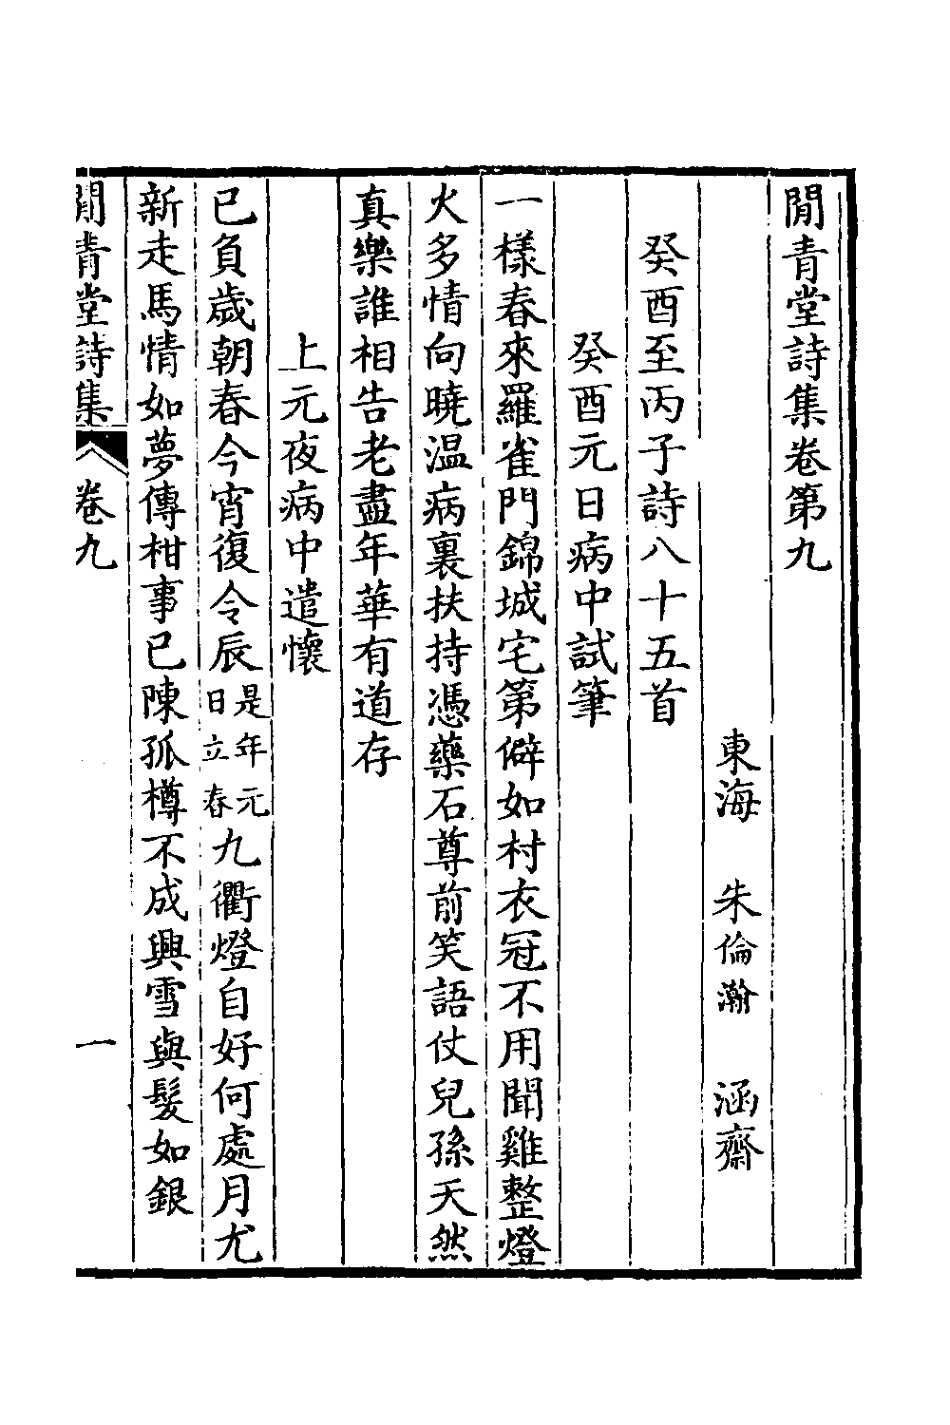 閒青堂詩集卷第九
東海　朱倫瀚　涵齋
癸酉至丙子詩八十五首
癸酉元日病中試筆
一樣春來羅雀門錦城宅第僻如村衣冠不用聞雞整燈
火多情向曉温病裏扶持憑藥石尊前笑語仗兒孫天然
真樂誰相告老盡年華有道存
上元夜病中遣懷
已負歲朝春今宵復令辰是年元日立春九衢燈自好何處月尤
新走馬情如夢傳柑事已陳孤樽不成興雪與髮如銀
閒青堂詩集　卷九　一